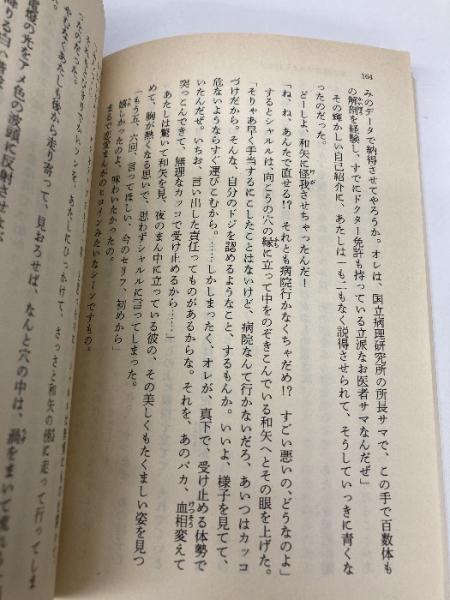 164
みのデータで納得させてやろうか。オレは、国立病理研究所の所長サマで、この手で百数体も
の解剖を経験し、すでにドクター免許も持っている立派なお医者サマなんだぜ」
その輝かしい自己紹介に、あたしは一も二もなく説得させられて、そうしていっきに青くな
ったのだった。
どーしよ、和矢に怪我させちゃったんだ!
「ね、ね、あんたで直せる!? それとも病院行かなくちゃだめ!? すごい悪いの、どうなのよ」
するとシャルルは、向こうの穴の縁に立って中をのぞきこんでいる和矢へとその眼を上げた。
「そりゃあ早く手当するにこしたことはないけど、病院なんて行かないだろ、あいつはカッコ
づけだから。そんな、自分のドジを認めるようなこと、するもんか。いいよ、様子を見てて、
危ないようならすぐ運びこむから。……しかしまったく、オレが、真下で、受け止める体勢で
いたんだぜ。いちお、言い出した責任ってものがあるからな。それを、あのバカ、血相変えて
突っとんできて、無理なカッコで受け止めるから……」
あたしは驚いて和矢を見、夜のまん中に立っている彼の、その美しくもたくましい姿を見つ
めて、胸が熱くなる思いで、思わずシャルルに言ってしまった。
「もう五、六回、言ってほしい、今のセリフ、初めから」
嬉しかったのよ、味わいたかったの。
まるで恋愛まんがのヒロインみたいなシーンですもの。